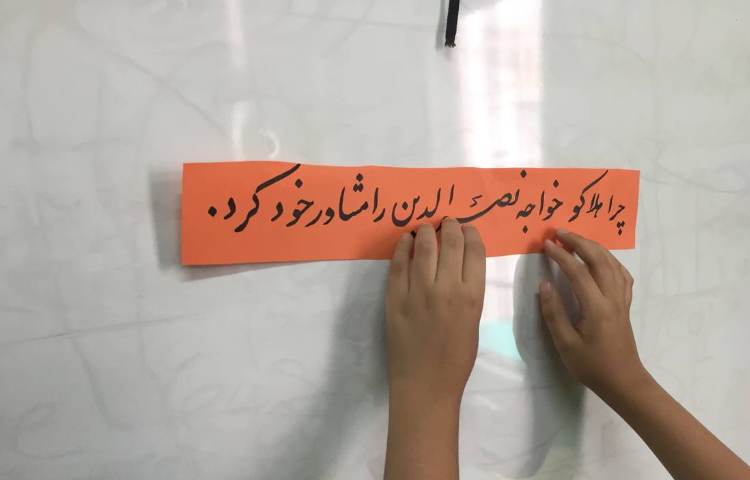 چرا هلاکو خواجه نصیر الدین را مشاور خود کرد.